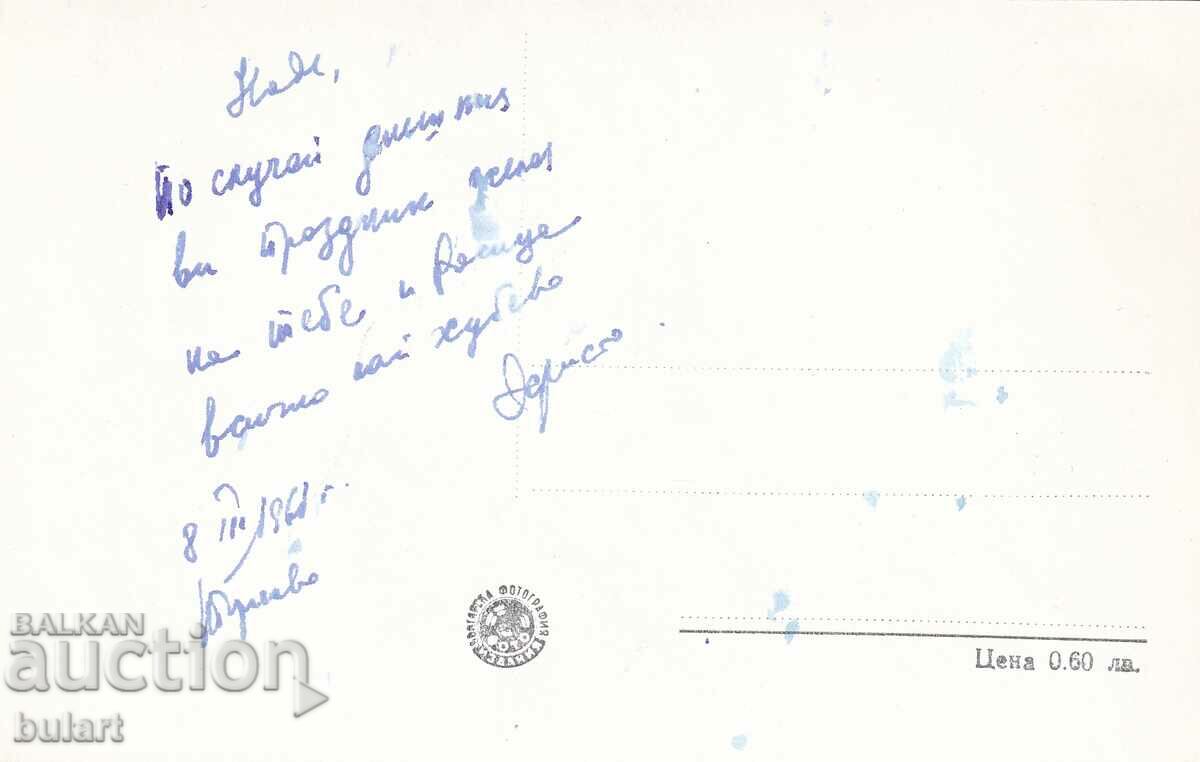 Надя,
По случай днешния
ви празник желая
на тебе и Росица
всичко най хубаво
8 III 1961 г.
БЪЛГАРСКА ФОТОГРАФИЯ
Цена 0.60 лв.
BALKAN
auction
bulart